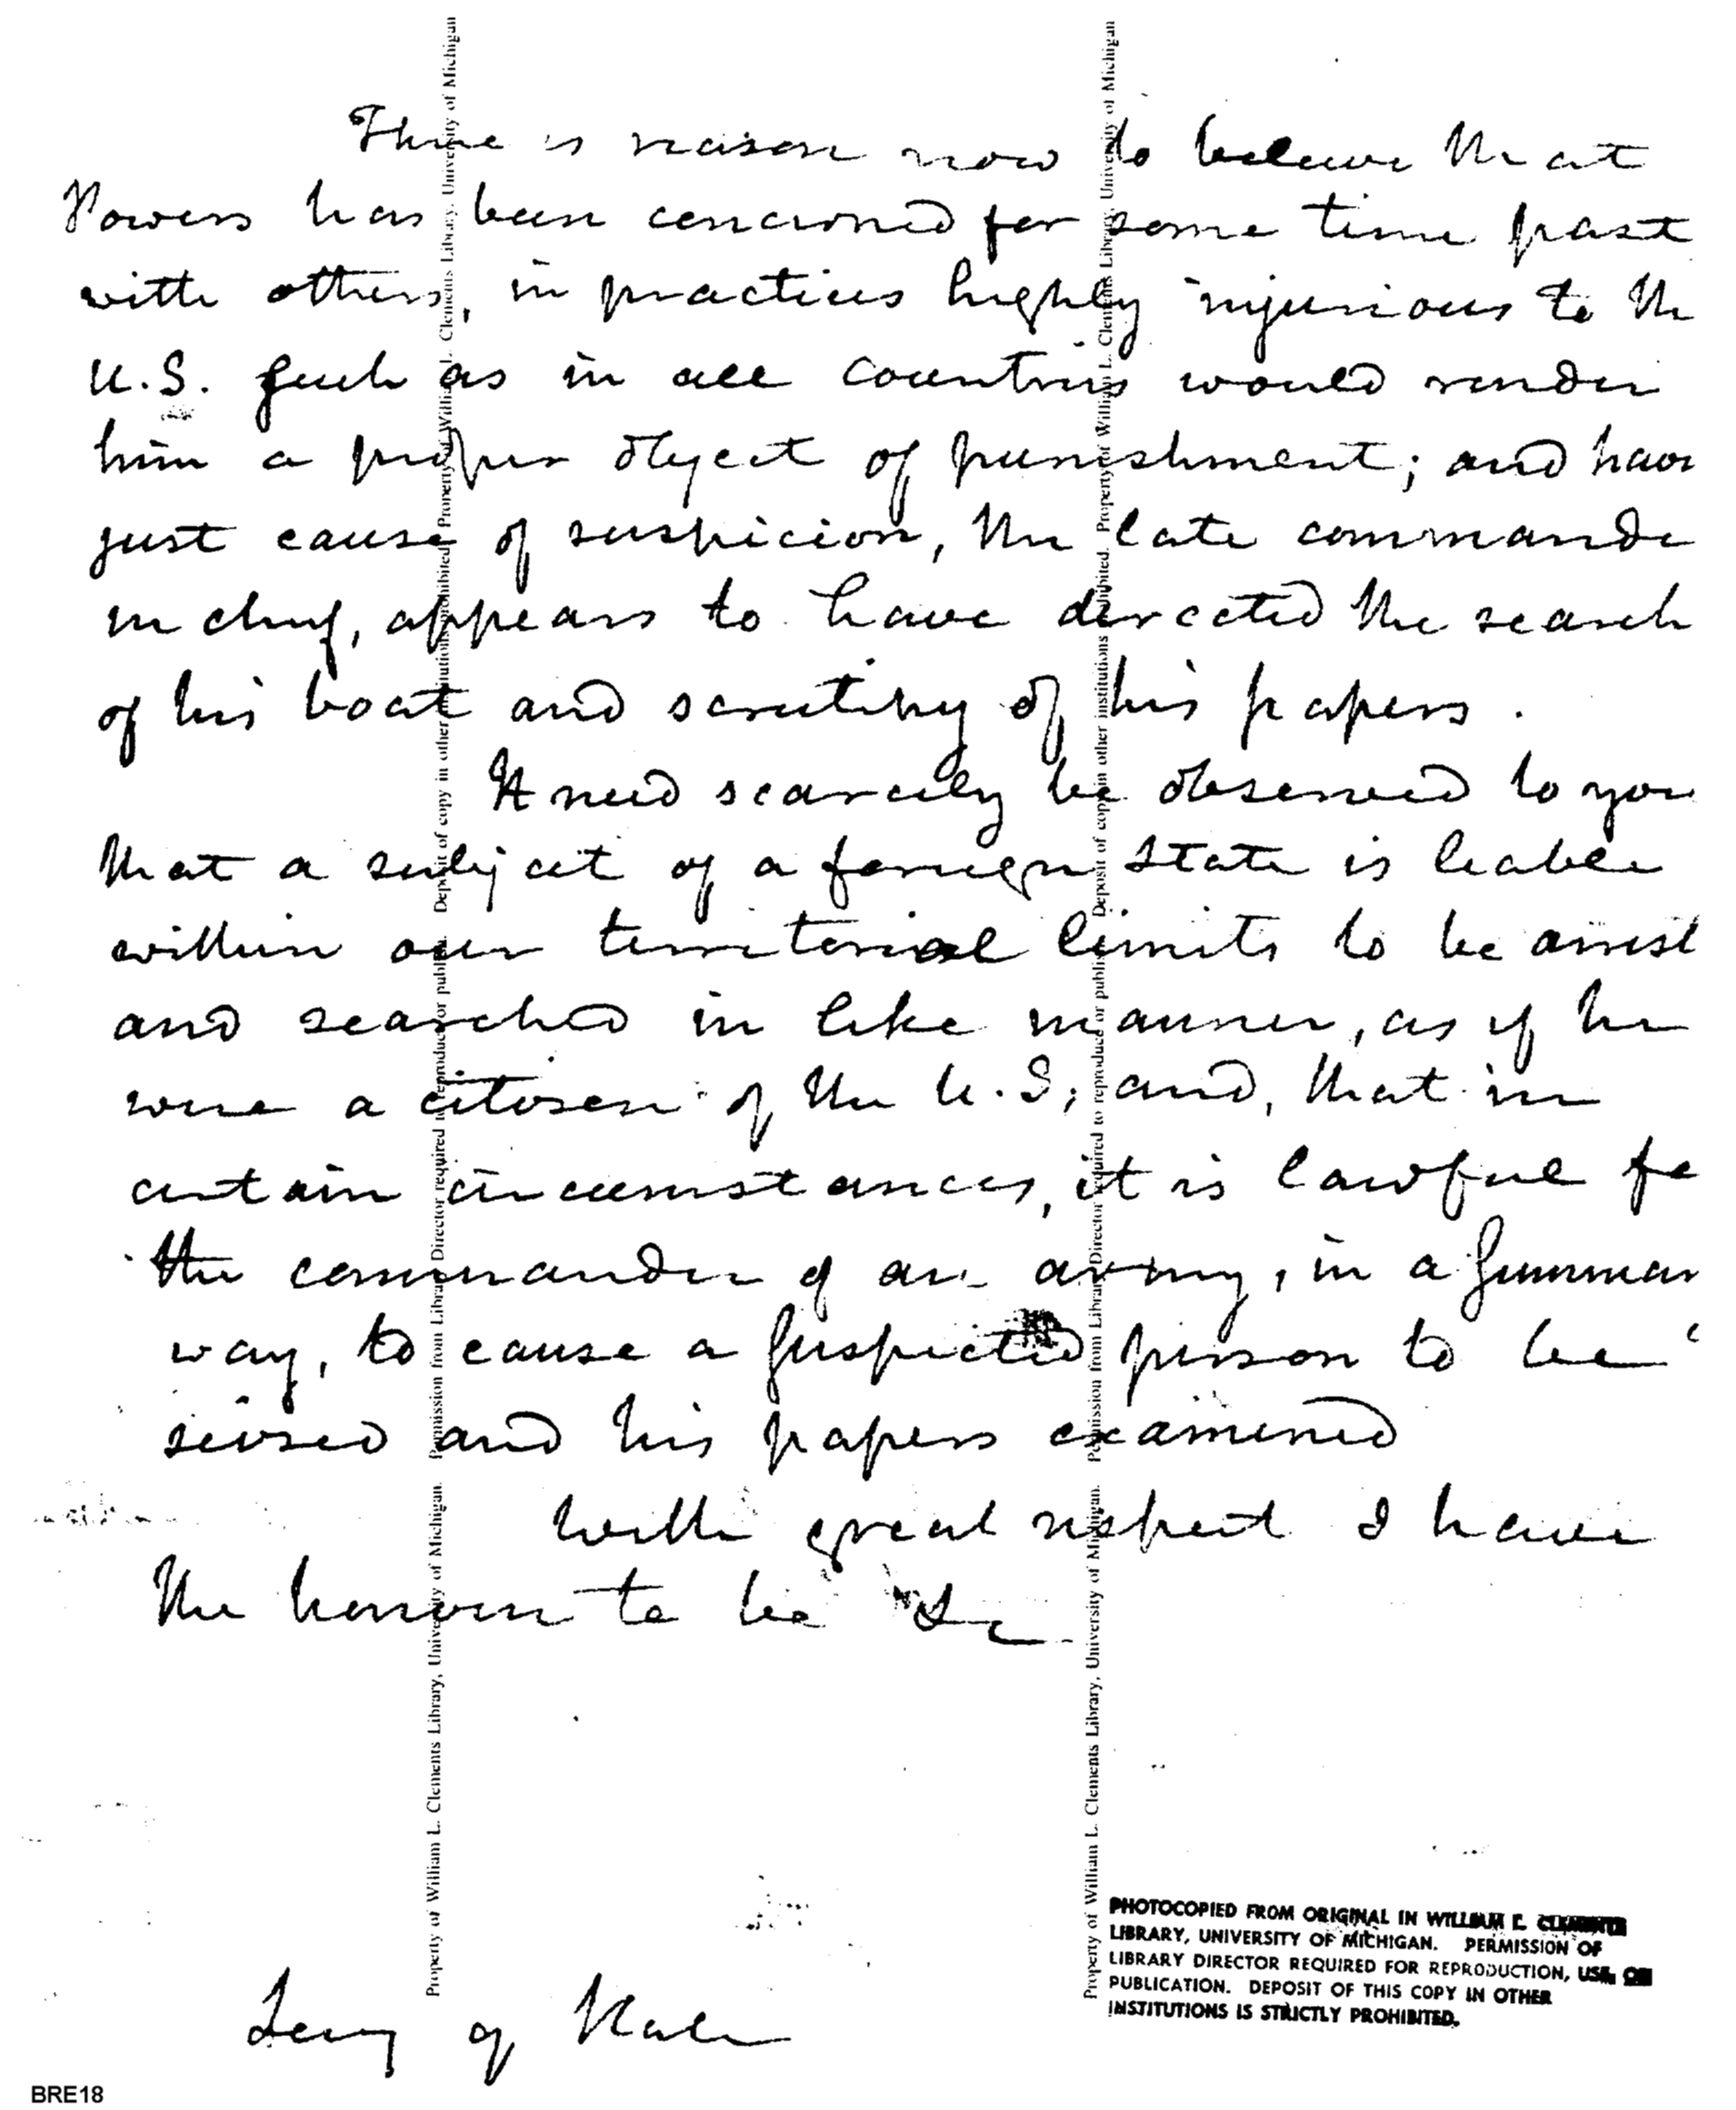 There is reason now to believe that
Powers has been concerned for some time past
with others, in practices highly injurious to the
U.S. such as in all countries would render
him a proper object of punishment; and have
just cause of suspicion, the late commande
in chief, appears to have directed the search
of his boat and scrutiny of his papers.
It need scarcely be observed to you
that a subject of a foreign state is liable
within our territorial limits to be arrest
and searched in like manner, as if he
were a citosen of the U.S; and, that in
certain circumstances, it is lawful fo
the commander of an army, in a summar
way, to cause a suspected person to be
seised and his papers examined
With great respect I have
the honour to be &c
Secy of State
PHOTOCOPIED FROM ORIGINAL IN WILLIAM L. CLEMENTS
LIBRARY, UNIVERSITY OF MICHIGAN. PERMISSION OF
LIBRARY DIRECTOR REQUIRED FOR REPRODUCTION, USE, OR
PUBLICATION. DEPOSIT OF THIS COPY IN OTHER
INSTITUTIONS IS STRICTLY PROHIBITED.
Property of William L. Clements Library, University of Michigan. Permission from Library Director required to reproduce or publish. Deposit of copy in other institutions prohibited. Property of William L. Clements Library, University of Michigan
Property of William L. Clements Library, University of Michigan. Permission from Library Director required to reproduce or publish. Deposit of copy in other institutions prohibited. Property of William L. Clements Library, University of Michigan
BRE18